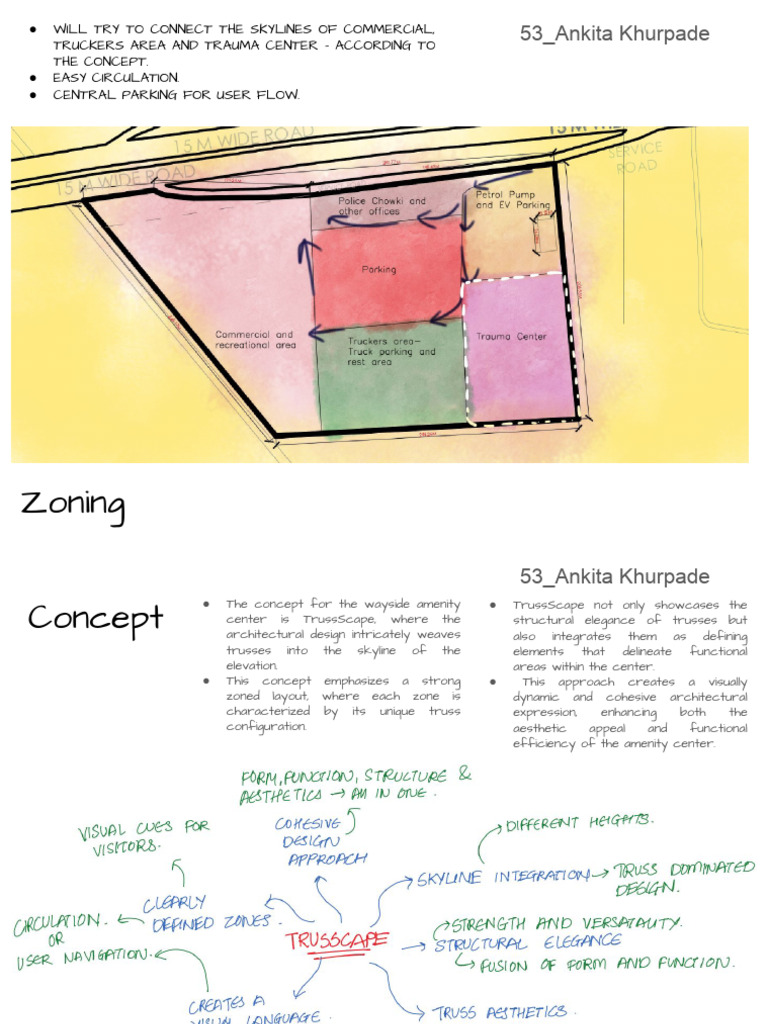 ● WILL TRY TO CONNECT THE SKYLINES OF COMMERCIAL,
TRUCKERS AREA AND TRAUMA CENTER - ACCORDING TO
THE CONCEPT.
● EASY CIRCULATION.
● CENTRAL PARKING FOR USER FLOW.
53_Ankita Khurpade
15 M WIDE ROAD
15 M WIDE ROAD
SERVICE
ROAD
Police Chowki and
other offices
Petrol Pump
and EV Parking
Parking
Commercial and
recreational area
Truckers area-
Truck parking and
rest area
Trauma Center
Zoning
53_Ankita Khurpade
Concept
● The concept for the wayside amenity
center is TrussScape, where the
architectural design intricately weaves
trusses into the skyline of the
elevation.
● This concept emphasizes a strong
zoned layout, where each zone is
characterized by its unique truss
configuration.
● TrussScape not only showcases the
structural elegance of trusses but
also integrates them as defining
elements that delineate functional
areas within the center.
● This approach creates a visually
dynamic and cohesive architectural
expression, enhancing both the
aesthetic appeal and functional
efficiency of the amenity center.
FORM, FUNCTION, STRUCTURE &
AESTHETICS → ALL IN ONE.
VISUAL CUES FOR
VISITORS.
COHESIVE
DESIGN
APPROACH
DIFFERENT HEIGHTS.
SKYLINE INTEGRATION → TRUSS DOMINATED
DESIGN.
CLEARLY
DEFINED ZONES.
CIRCULATION.
OR
USER NAVIGATION.
TRUSSCAPE
STRENGTH AND VERSATALITY.
STRUCTURAL ELEGANCE
FUSION OF FORM AND FUNCTION.
CREATES A
VISUAL LANGUAGE.
TRUSS AESTHETICS.